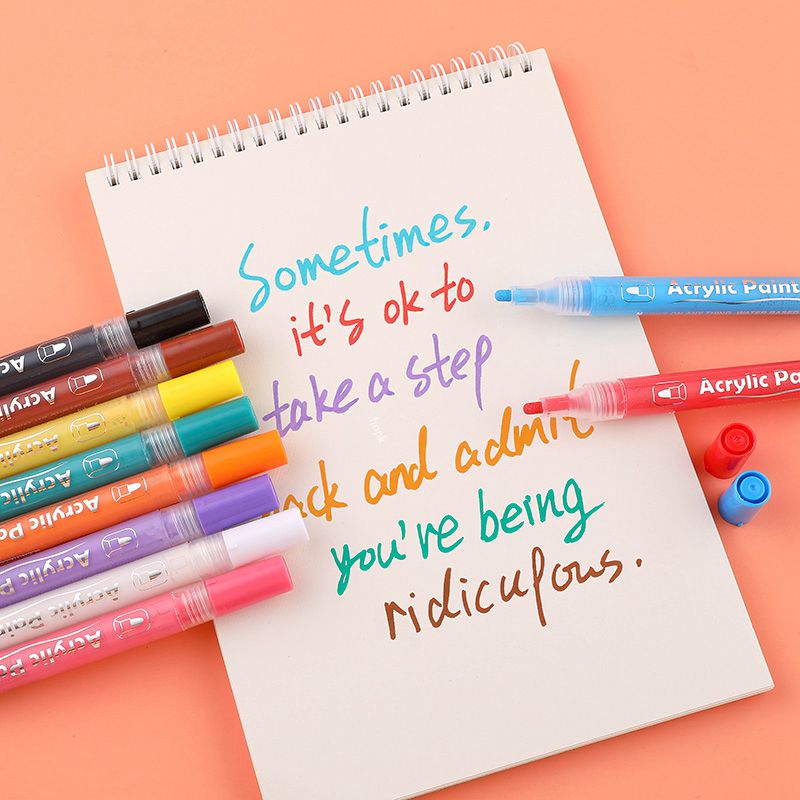 Sometimes.
it's ok to
take a step
back and admit
you're being
ridiculous.
Acrylic Paint
ON ANYTHING, WATER BASED
Acrylic Pa
Ac
Acry
Acrylic
Acrylic
Acrylic Pa
Acrylic Pa
Acrylic Pain
Acrylic Pa